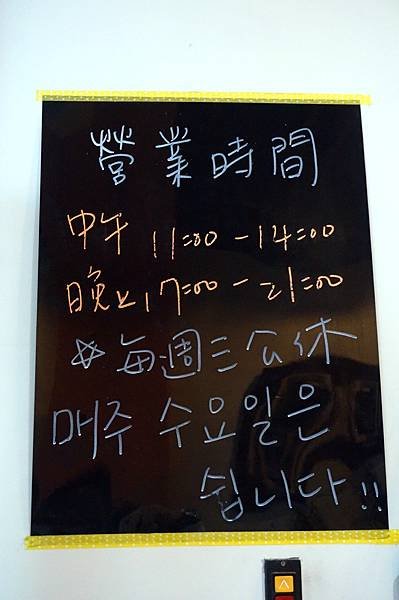 營業時間
中午 11:00 - 14:00
晚上 17:00 - 21:00
☆每週三公休
매주 수요일은
쉽니다!!